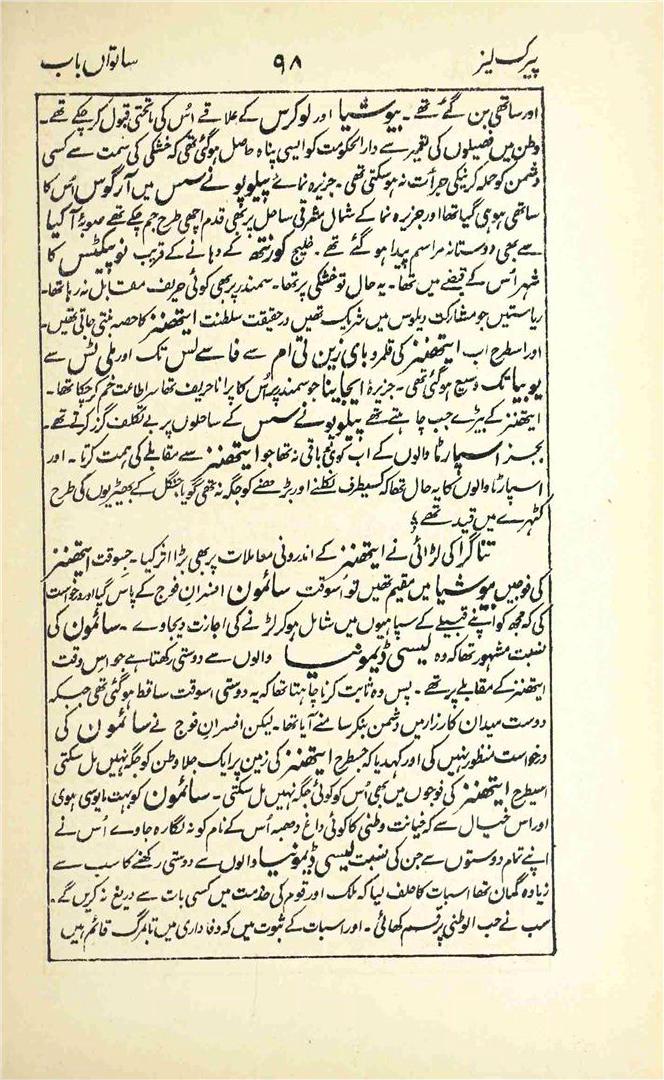 پیرک لیز ۹۸ ساتواں باب
اور ساتھی بن گئے تھے ۔ بیوشیا اور لوکرس کے علاقے اُس کی ماتحتی قبول کر چکے تھے ۔
وطن میں فصیلوں کی تعمیر سے دارالحکومت کو ایسی پناہ حاصل ہو گئی تھی کہ خشکی کی سمت سے کسی
دشمن کو حملہ کرنیکی جرأت نہ ہو سکتی تھی ۔ جزیرہ نمائے پیلوپونےسس میں آرگوس اُس کا
ساتھی ہو ہی گیا تھا اور جزیرہ نما کے شمال مشرقی ساحل پر بھی قدم اچھی طرح جم چکے تھے صوبۂ آکیا
سے بھی دوستانہ مراسم پیدا ہو گئے تھے ۔ خلیج کورنتھ کے دہانے کے قریب نوپیکٹس کا
شہر اُس کے قبضے میں تھا ۔ یہ حال تو خشکی پر تھا ۔ سمندر پر بھی کوئی حریف مقابل نہ رہا تھا ۔
ریاستیں جو مشارکت دیلوس میں شریک تھیں درحقیقت سلطنت ایتھنز کا حصہ بنتی جاتی تھیں ۔
اور اسطرح اب ایتھنز کی قلمرو بای زین تی ام سے فاسے لس تک اور ملی ٹس سے
یوبیا تک وسیع ہو گئی تھی ۔ جزیرۂ ایجاینا جو سمندر پر اُس کا پرانا حریف تھا سر اطاعت خم کر چکا تھا ۔
ایتھنز کے بیڑے جب چاہتے تھے پیلوپونےسس کے ساحلوں پر بے تکلف گزر کرتے تھے ۔
بجز اسپارٹا والوں کے اب کوئی باقی نہ تھا جو ایتھنز سے مقابلے کی ہمت کرتا ۔ اور
اسپارٹا والوں کا یہ حال تھا کہ کسیطرف نکلنے اور بڑھنے کو جگہ نہ تھی گویا جنگل کے بھیڑیوں کی طرح
کٹہرے میں قید تھے ؛
تناگرا کی لڑائی نے ایتھنز کے اندرونی معاملات پر بھی بڑا اثر کیا ۔ جسوقت ایتھنز
کی فوجیں بیوشیا میں مقیم تھیں تو اُسوقت سائمون افسران فوج کے پاس گیا اور درخواست
کی کہ مجھ کو اپنے قبیلے کے سپاہیوں میں شامل ہو کر لڑنے کی اجازت دیجاوے ۔ سائمون کی
نسبت مشہور تھا کہ وہ لیسی ڈیمونیا والوں سے دوستی رکھتا ہے جو اس وقت
ایتھنز کے مقابلے پر تھے ۔ پس وہ ثابت کرنا چاہتا تھا کہ یہ دوستی اسوقت ساقط ہو گئی تھی جبکہ
دوست میدان کارزار میں دشمن بنکر سامنے آیا تھا ۔ لیکن افسران فوج نے سائمون کی
درخواست منظور نہیں کی اور کہدیا کہ جسطرح ایتھنز کی زمین پر ایک جلاوطن کو جگہ نہیں مل سکتی
اسیطرح ایتھنز کی فوجوں میں بھی اُس کو کوئی جگہ نہیں مل سکتی ۔ سائمون کو بہت مایوسی ہوی
اور اس خیال سے کہ خیانت وطنی کا کوئی داغ دھبہ اُس کے نام کو نہ لگا رہ جاوے اُس نے
اپنے تمام دوستوں سے جن کی نسبت لیسی ڈیمونیا والوں سے دوستی رکھنے کا سب سے
زیادہ گمان تھا اسبات کا حلف لیا کہ ملک اور قوم کی خدمت میں کسی بات سے دریغ نہ کریں گے ۔
سب نے حب الوطنی پر قسم کھائی ۔ اور اسبات کے ثبوت میں کہ وفاداری میں تا بمرگ قائم ہیں